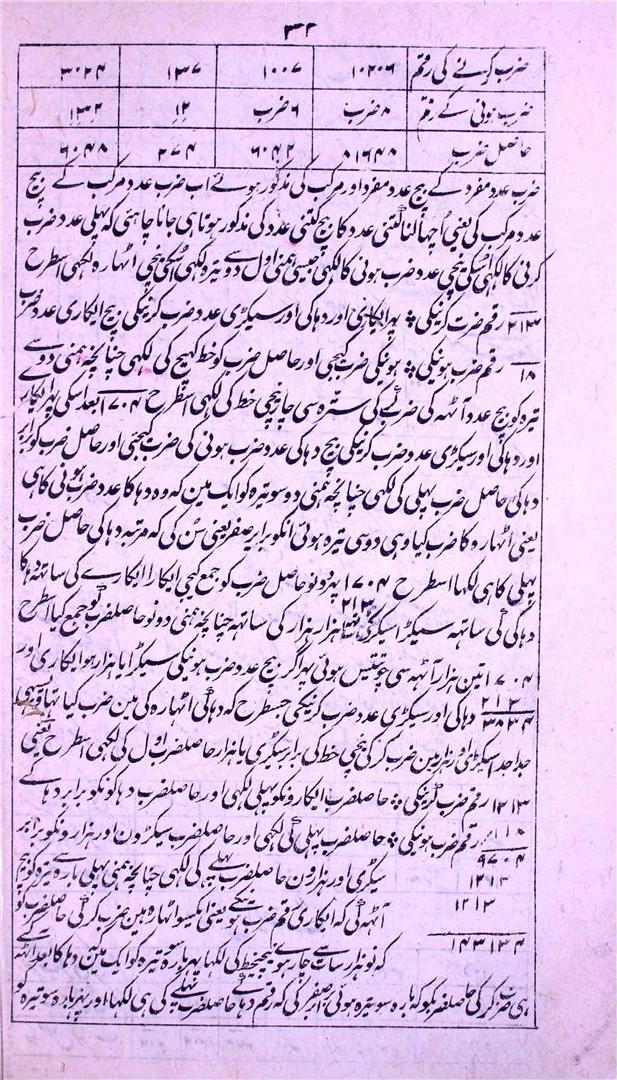 ۳۴
ضرب کرنے کی رقم ۱۰۲۰۶ ۱۰۰۷ ۱۳۷ ۳۰۲۴
ضرب ہونی کے رقم ۸ ضرب ۶ ضرب ۱۲ ۱۳۲
حاصل ضرب ۸۱۶۴۸ ۶۰۴۲ ۲۷۴ ۶۰۴۸
ضرب عدد مفرد کے بیچ عدد مفرد اور مرکب کی مذکور ہوئے اب ضرب عدد مرکب کے بیچ
عدد مرکب کی یعنی اُچھالنا کتنی عدد کا بیچ کتنی عدد کی مذکور ہوتا ہی جانا چاہئی کہ پہلی عدد ضرب
کرنی کا لکہی اُسکی نیچی عدد ضرب ہونی کا لکہی جیسی ہمنی اول دو سے تیرہ لکہی اُسکی نیچی اٹہارہ لکہی اسطرح
۲۱۳ رقم ضرب کرنیکی پہر ایکاری اور دہاکی اور سیکڑی عدد ضرب کرنیکی بیچ ایکاری عدد ضرب
۱۸ رقم ضرب ہونیکی ہونیکی ضرب کیجی اور حاصل ضرب کو خط کہیچ کی لکہی چنانچہ ہمنی دو سے
تیرہ کو بیچ عدد آٹہہ کی ضرب کی سترہ سی چار نیچی خط کی لکہی اسطرح ۱۷۰۴ بعد اسکی پہر ایکار
اور دہاکی اور سیکڑی عدد ضرب کرنیکی بیچ دہاکی عدد ضرب ہونی کی ضرب کیجئی اور حاصل ضرب کو برابر
دہاکی حاصل ضرب پہلی کی لکہی چنانچہ ہمنی دو سو تیرہ کو ایک مین کہ وہ دہا کا عدد ضرب ہونی کا ہی
یعنی اٹہارہ کا ضرب کیا وہی دو سی تیرہ ہوئی انکو برابر صفر یعنی سُن کی کہ مرتبہ دہاکی حاصل ضرب
پہلی کا ہی لکہا اسطرح ۱۷۰۴ پہر دونو حاصل ضرب کو جمع کیجی ایکارا ایکارے کی ساتہہ دہاکا
۲۱۳
دہاکی کی ساتہہ سیکڑا سیکڑی ہزار ہزار کی ساتہہ چنانچہ ہمنی دونو حاصلضرب کو جمع کیا اسطرح
۱۷۰۴ تین ہزار آٹہہ سی چونتیس ہوئی پہر اگر بیچ عدد ضرب ہونیکی سیکڑا یا ہزار ہو ایکاری اور
۲۱۳
۳۸۳۴ دہاکی اور سیکڑی عدد ضرب کرنیکی جسطرح کہ دہاکی اٹہارہ کی مین ضرب کیا تہا ویسی ہی
جدا جدا سیکڑی اور ہزار مین ضرب کرکی نیچی خط کی برابر سیکڑی یا ہزار حاصلضرب اول کی لکہی اسطرح یعنی
۱۲۱۳ رقم ضرب کرنیکی حاصلضرب ایکارونکو پہلی لکہی اور حاصلضرب دہاکونکو برابر دہاکے
۱۱۸ رقم ضرب ہونیکی حاصلضرب پہلی کی لکہی اور حاصلضرب سیکڑون اور ہزارونکو برابر
۹۷۰۴
سیکڑی اور ہزارون حاصلضرب پہلے کی لکہی چنانچہ ہمنی پہلی بارہ سے تیرہ کو بیچ
۱۲۱۳
آٹہہ کی کہ ایکاری رقم ضرب ہونیکے یعنی ایکسو اٹہارہ مین ضرب کرکی حاصلضرب کو
۱۲۱۳
۱۴۳۱۳۴
کہ نو ہزار سات سے چار ہوے نیچے خط کی لکہا پہر بارہ سو تیرہ کو ایک مین دہاکا
ہی ضرب کرکی حاصلضرب کو کہ بارہ سو تیرہ ہوئی برابر صفر کی کہ رقم دہاکے حاصلضرب پہلے کی ہی لکہا اور پہر بارہ سو تیرہ کو